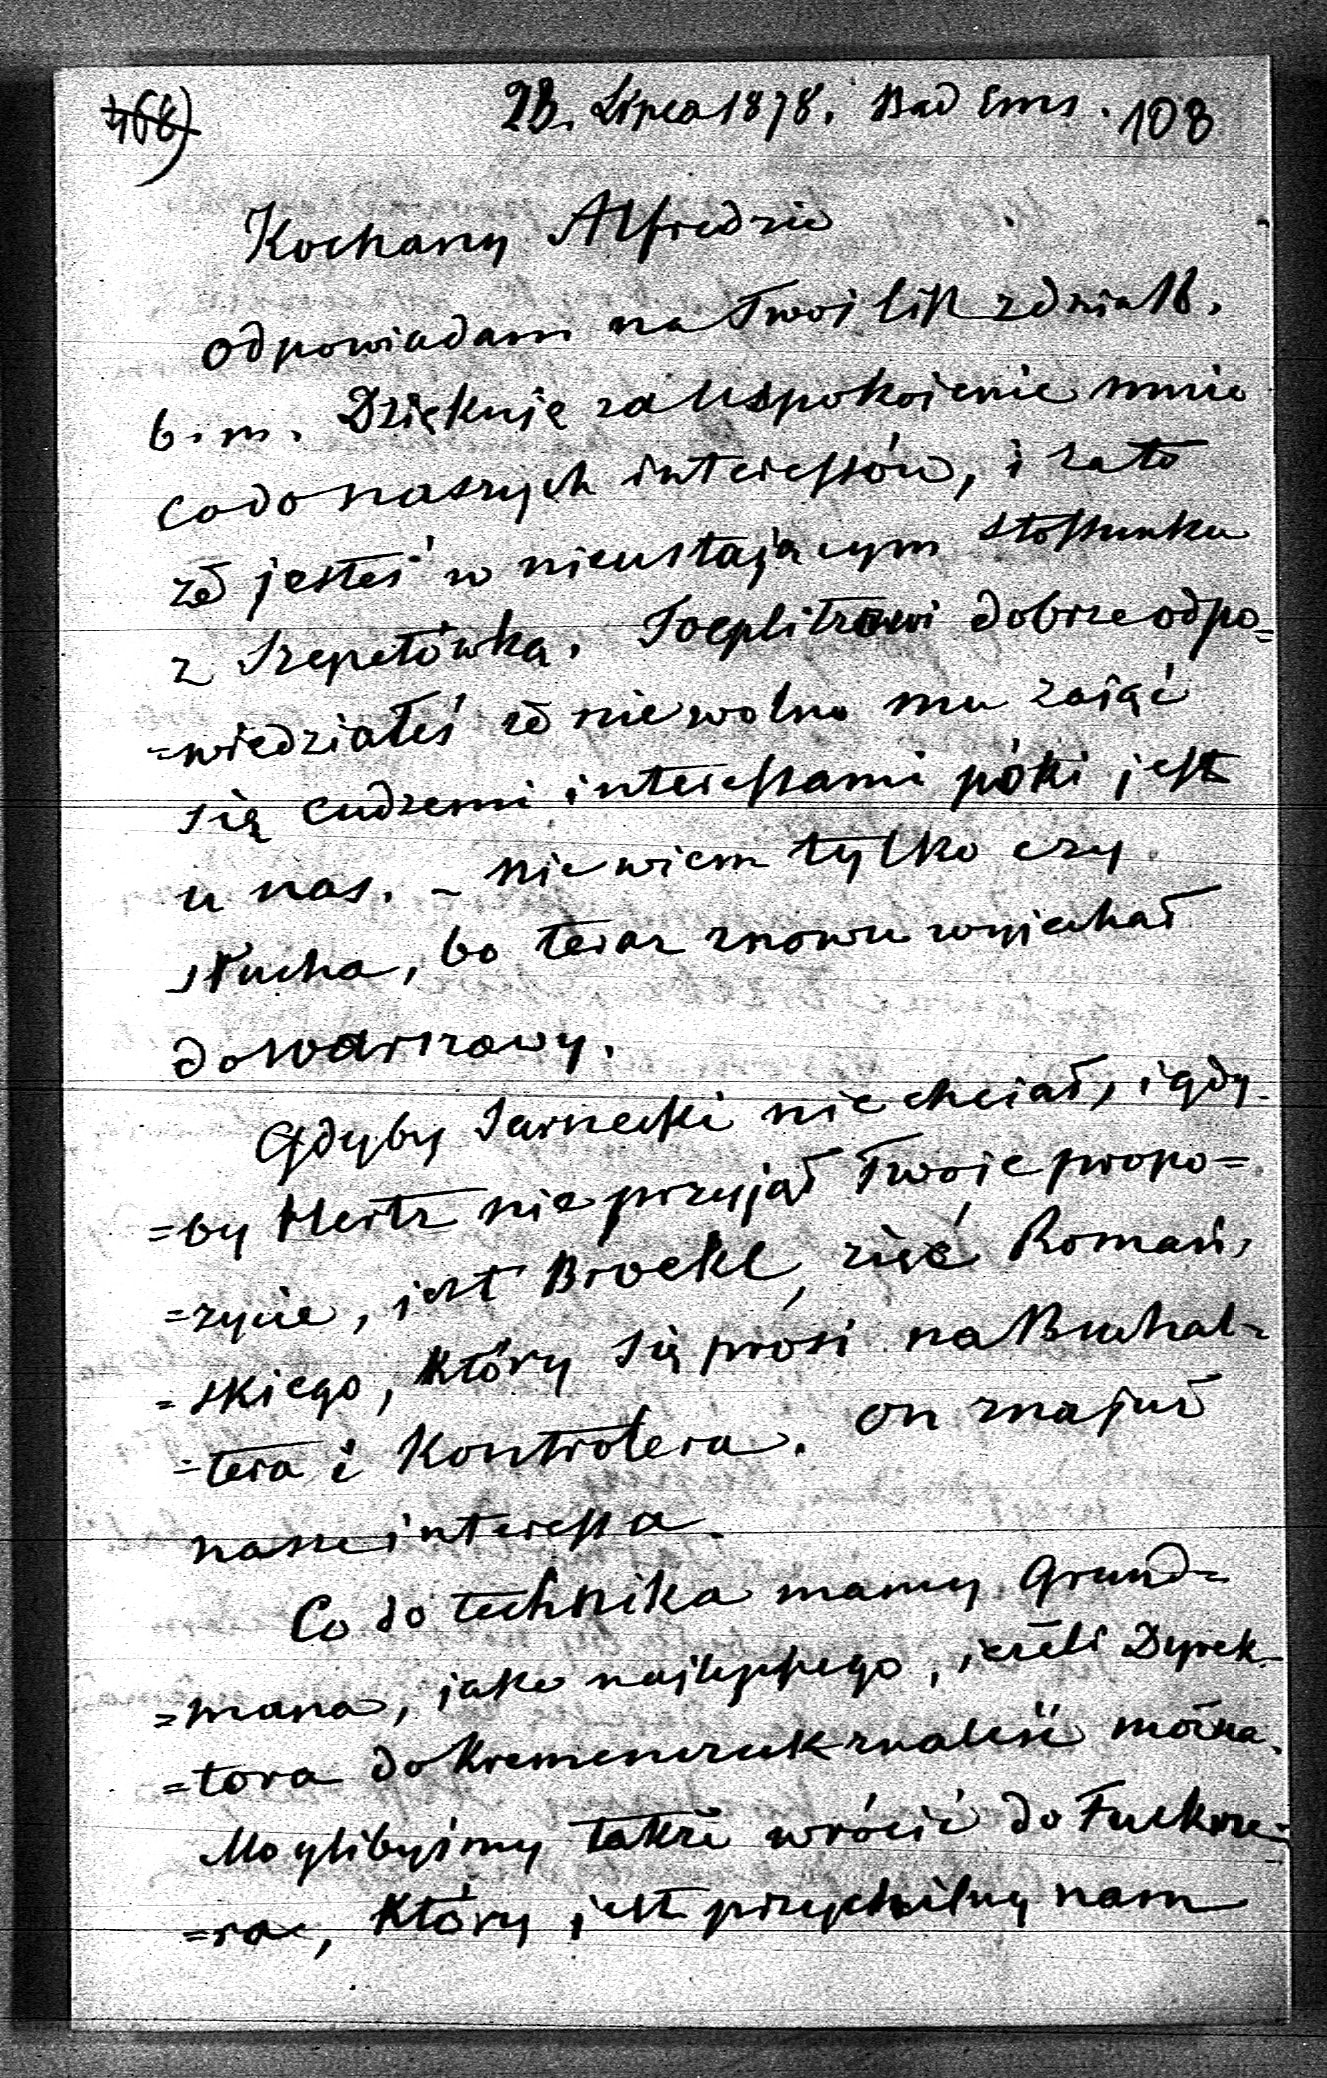 468) 23. Lipca 1878. Bad Ems. 108
Kochany Alfredzie
Odpowiadam na Twoj list z dnia 18.
b. m. Dziękuję za uspokojenie mnie
co do naszych interessów, i za to
że jesteś w nieustającym stossunku
z Szepetówką. Toeplitzowi dobrze odpo=
=wiedziałeś że nie wolno mu zająć
się cudzemi interessami póki jest
u nas. – nie wiem tylko czy
słucha, bo teraz znowu wyjechał
do Warszawy.
Gdyby Sarnecki nie chciał, i gdy
=by Hertz nie przyjął Twoje propo=
=zycie, jest Brockl, zięć Romań=
=skiego, który się prosi na Buchal=
=tera i Kontrolera. On zna już
nasze interessa.
Co do technika mamy Grund=
=mana, jako najlepszego, jeżeli Dyrek=
=tora do Kremenczuk znaleść można.
Moglibyśmy także wrócić do
=ra, który jest przychilny nam